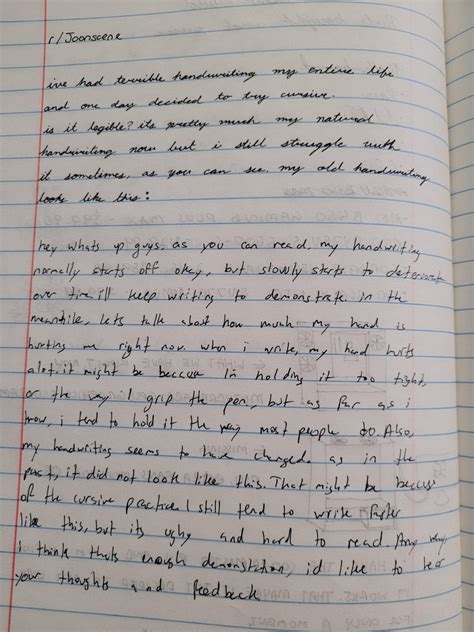 r/Joonscene
ive had terrible handwriting my entire life
and one day decided to try cursive.
is it legible? its pretty much my natural
handwriting now but i still struggle with
it sometimes. as you can see, my old handwriting
looks like this:
hey whats up guys, as you can read, my handwriting
normally starts off okay, but slowly starts to deteriorate
over time. ill keep writing to demonstrate. in the
meanwhile, lets talk about how much my hand is
hurting me right now. when i write, my hand hurts
alot. it might be because Im holding it too tight,
or the way I grip the pen, but as far as i
know, i tend to hold it the way most people do. Also,
my handwriting seems to have changed, as in the
past, it did not look like this. That might be because
of the cursive practice. I still tend to write faster
like this, but its ugly and hard to read. Any way,
i think thats enough demonstation, id like to hear
your thoughts and feedback